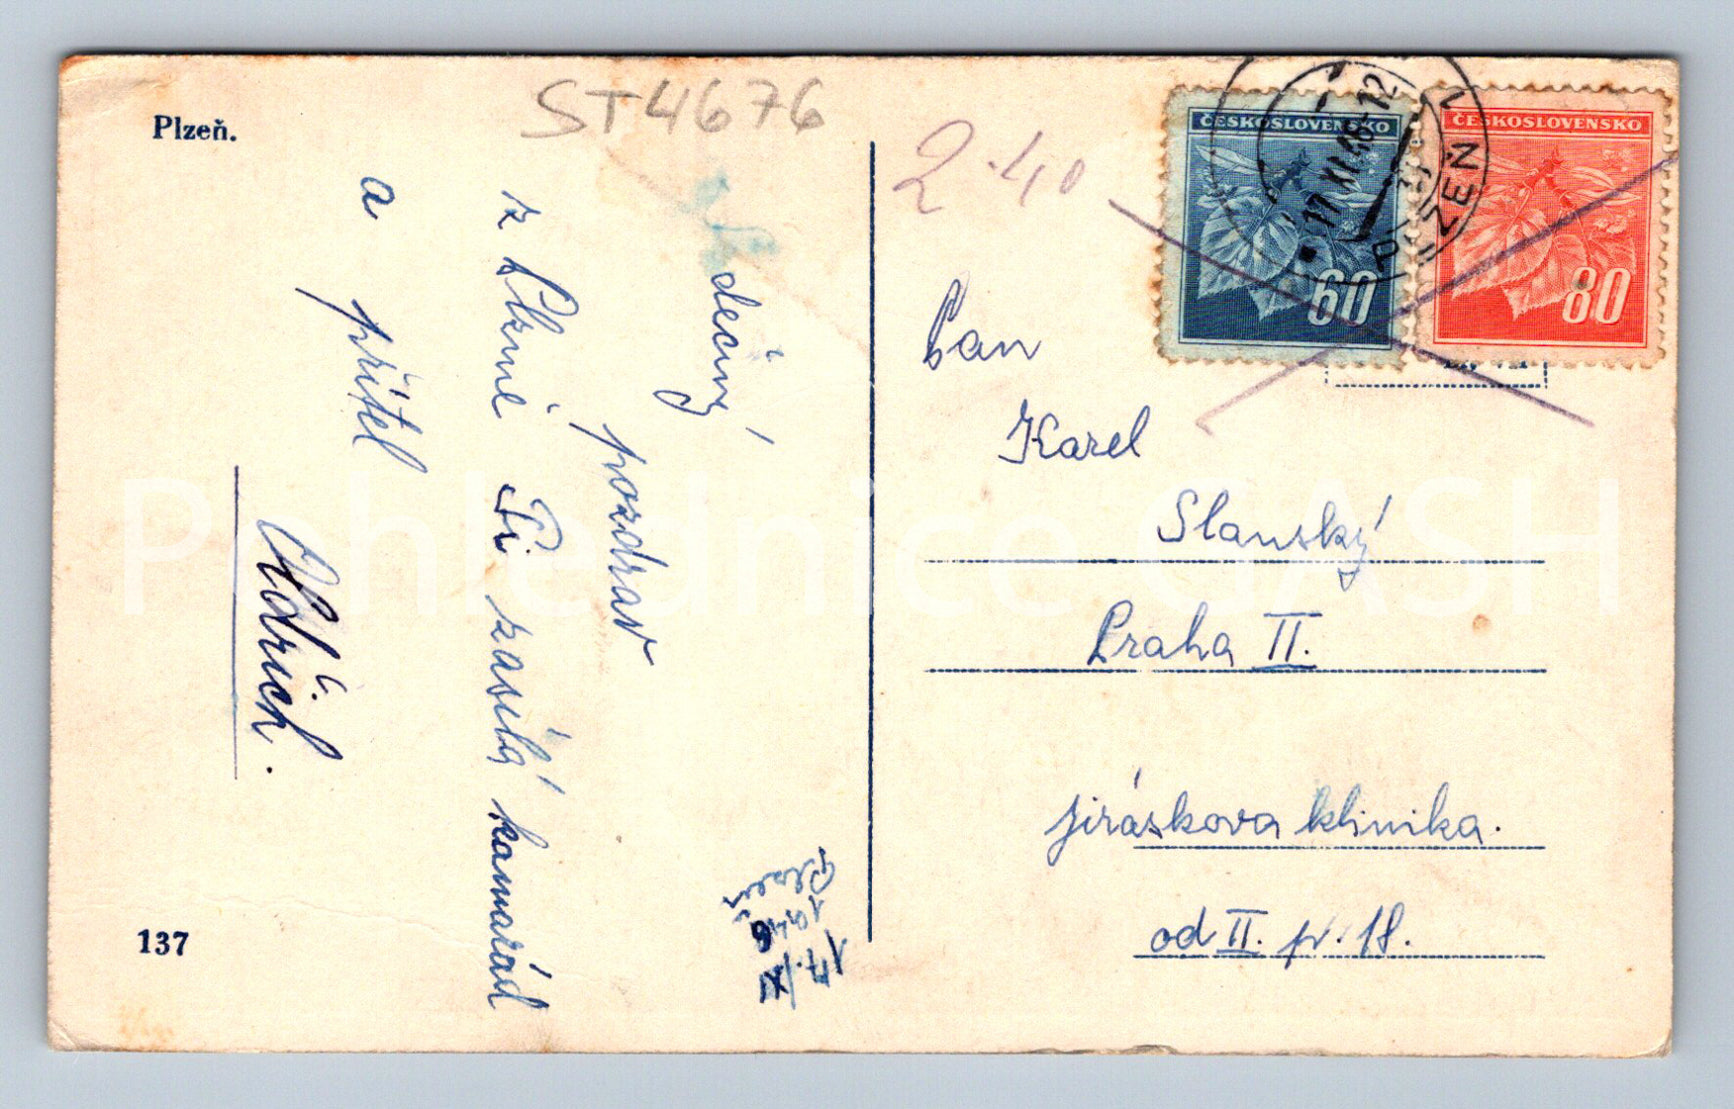 Plzeň.
ST4676
2.40
ČESKOSLOVENSKO
60
ČESKOSLOVENSKO
80
PLZEŇ 1
17 XI 48-12
dečný
pozdrav
z Plzně Ti zasílá kamarád
a přítel
Oldřich.
Plzeň
17./XI
1946
Pan
Karel
Slanský
Praha II.
jiráskova klinika.
od II. p. 18.
137
Pohlednice GASH